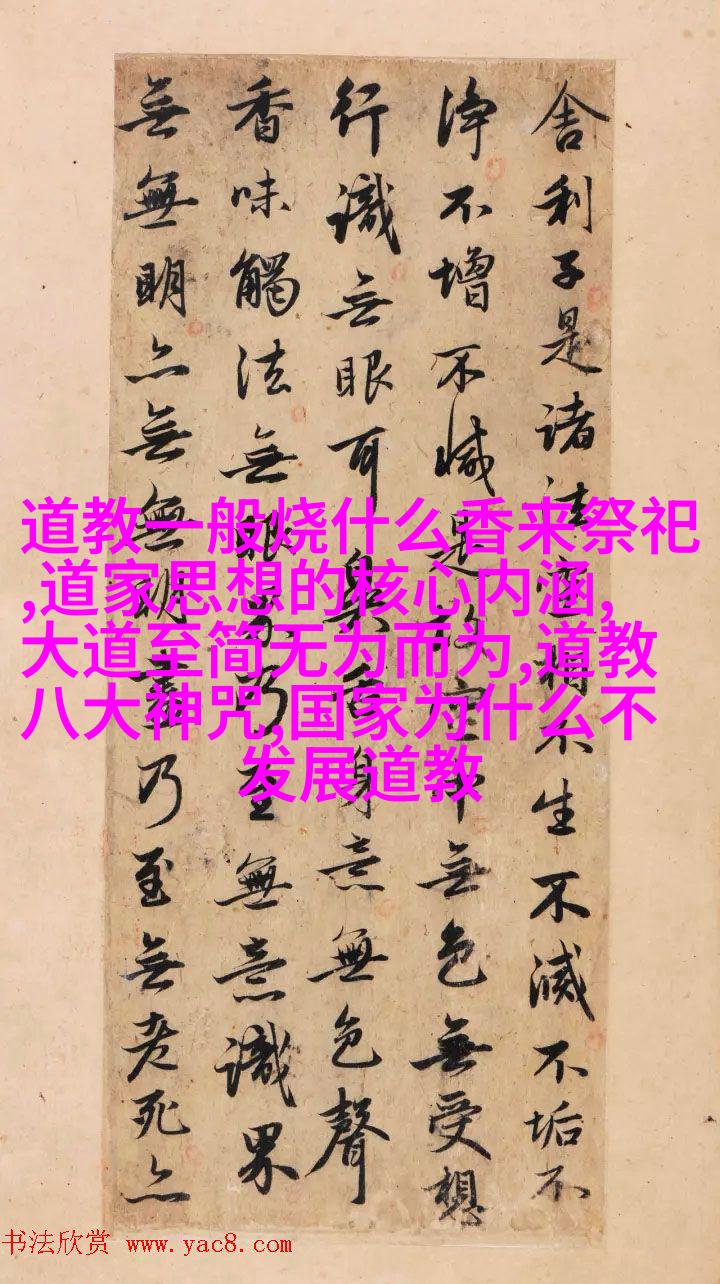 舍利子是諸法空相不生不滅不垢不
淨不增不減是故空中無色無受想
行識无眼耳鼻舌身意無色聲
香味觸法無眼界乃至無意識界
無無明亦無無明盡乃至無老死亦
道教一般烧什么香来祭祀
,道家思想的核心内涵,
大道至简无为而为,道教
八大神咒,国家为什么不
发展道教
书法欣赏 www.yac8.com